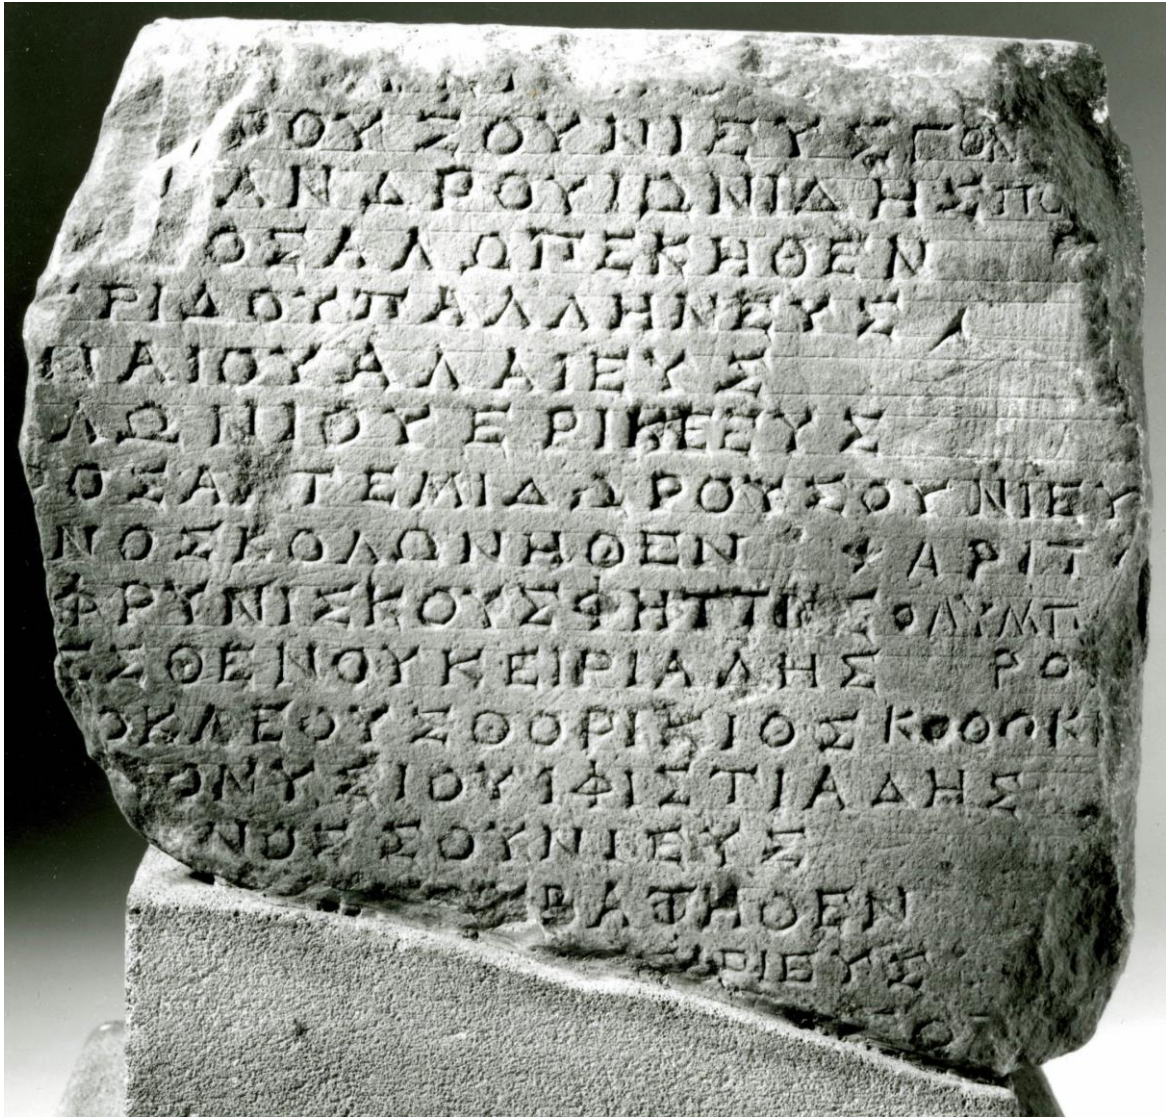 ΡΟΥΣΟΥΝΙΕΥΣ
ΑΝΔΡΟΥΙΩΝΙΔΗΣ ΠΟ
ΟΣΑΛΩΠΕΚΗΘΕΝ
ΡΙΔΟΥΠΑΛΛΗΝΕΥΣ Λ
ΝΑΙΟΥΑΛΑΙΕΥΣ
ΛΩΝΙΟΥΕΡΙΚΕΕΥΣ
ΟΣΑΡΤΕΜΙΔΩΡΟΥΣΟΥΝΙΕΥ
ΝΟΣΚΟΛΩΝΗΘΕΝ ΑΡΙΤ
ΦΡΥΝΙΣΚΟΥΣΦΗΤΤΙΟΣ ΟΛΥΜΠ
ΣΘΕΝΟΥΚΕΙΡΙΑΔΗΣ ΡΟ
ΟΚΛΕΟΥΣΘΟΡΙΚΙΟΣ ΚΟΘΩΚΙ
ΟΝΥΣΙΟΥΙΦΙΣΤΙΑΔΗΣ
ΝΟΣΣΟΥΝΙΕΥΣ
ΒΑΤΗΘΕΝ
ΡΙΕΥΣ